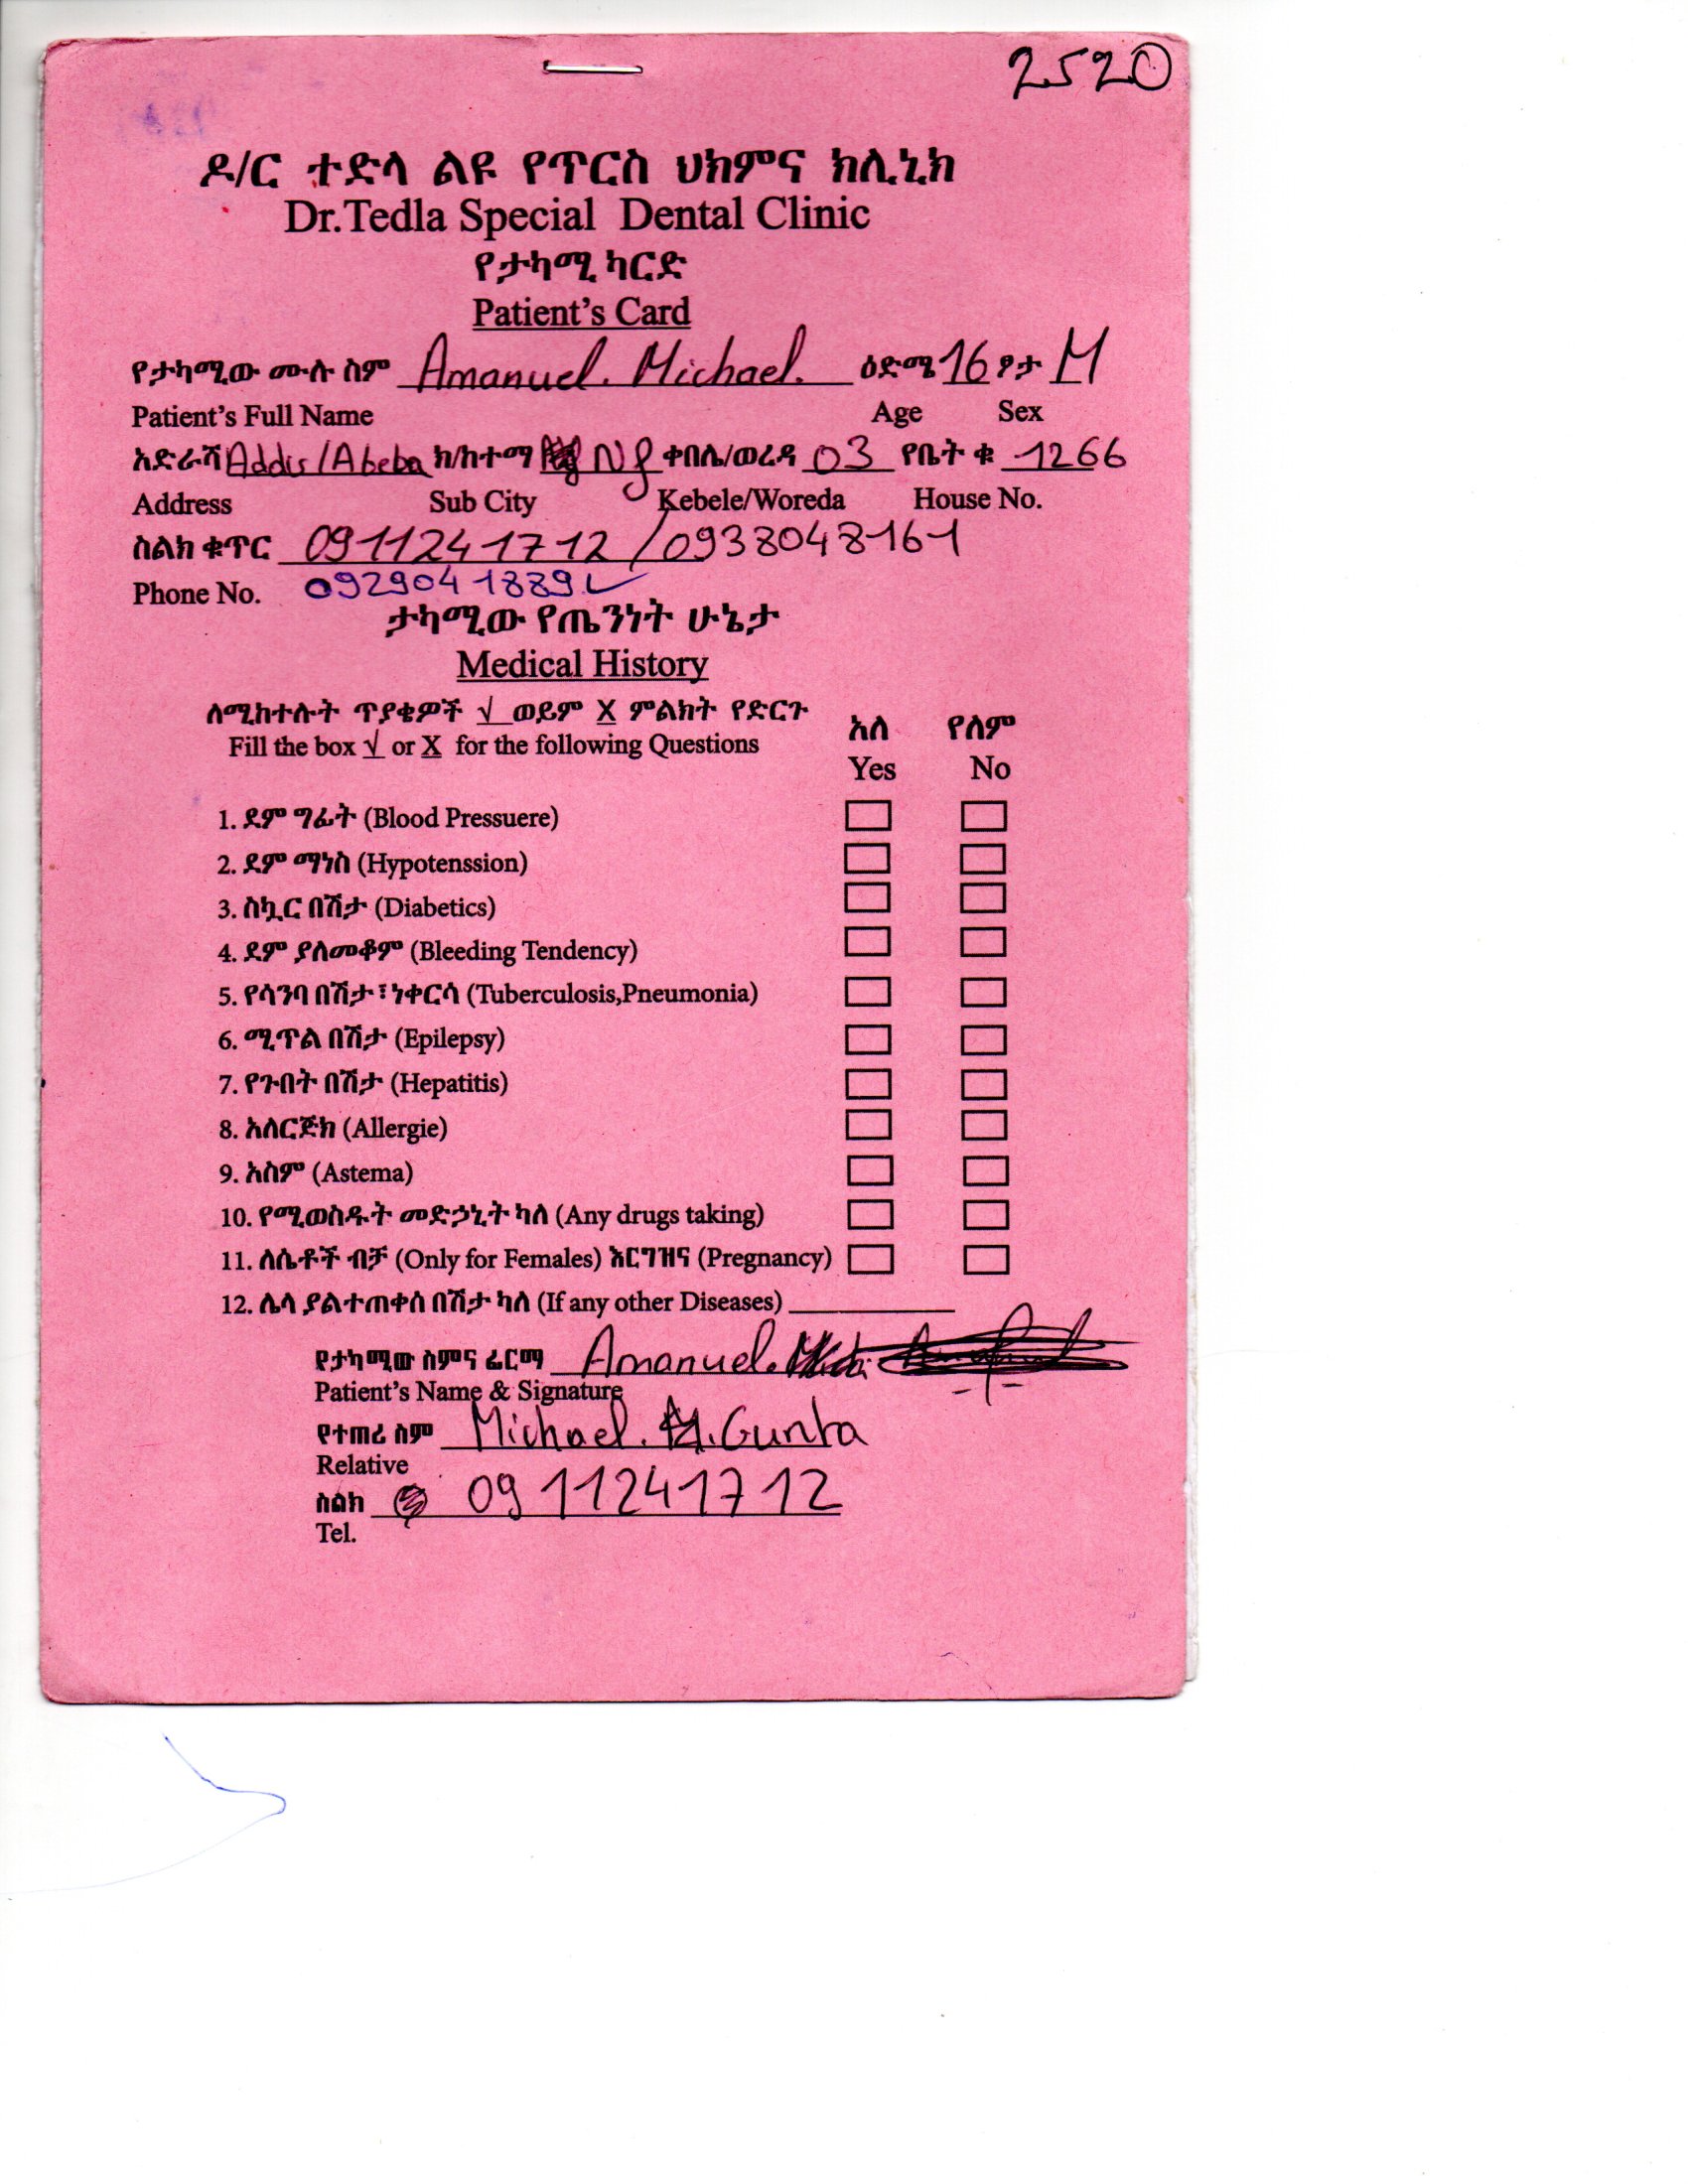 2520
ዶ/ር ተድላ ልዩ የጥርስ ህክምና ክሊኒክ
Dr.Tedla Special Dental Clinic
የታካሚ ካርድ
Patient's Card
የታካሚው ሙሉ ስም Amanuel. Michael. ዕድሜ 16 ፆታ M
Patient's Full Name Age Sex
አድራሻ Addis/Abeba ክ/ከተማ ቀበሌ/ወረዳ 03 የቤት ቁ 1266
Address Sub City Kebele/Woreda House No.
ስልክ ቁጥር 0911241712 / 0938048161
Phone No. 0929041889
ታካሚው የጤንነት ሁኔታ
Medical History
ለሚከተሉት ጥያቄዎች √ ወይም X ምልክት የድርጉ
Fill the box √ or X for the following Questions
አለ የለም
Yes No
1. ደም ግፊት (Blood Pressuere)
2. ደም ማነስ (Hypotenssion)
3. ስኳር በሽታ (Diabetics)
4. ደም ያለመቆም (Bleeding Tendency)
5. የሳንባ በሽታ፣ነቀርሳ (Tuberculosis,Pneumonia)
6. ሚጥል በሽታ (Epilepsy)
7. የጉበት በሽታ (Hepatitis)
8. አለርጅክ (Allergie)
9. አስም (Astema)
10. የሚወስዱት መድኃኒት ካለ (Any drugs taking)
11. ለሴቶች ብቻ (Only for Females) እርግዝና (Pregnancy)
12. ሌላ ያልተጠቀሰ በሽታ ካለ (If any other Diseases)
የታካሚው ስምና ፊርማ Amanuel.
Patient's Name & Signature
የተጠሪ ስም Michael. Gunta
Relative
ስልክ 0911241712
Tel.